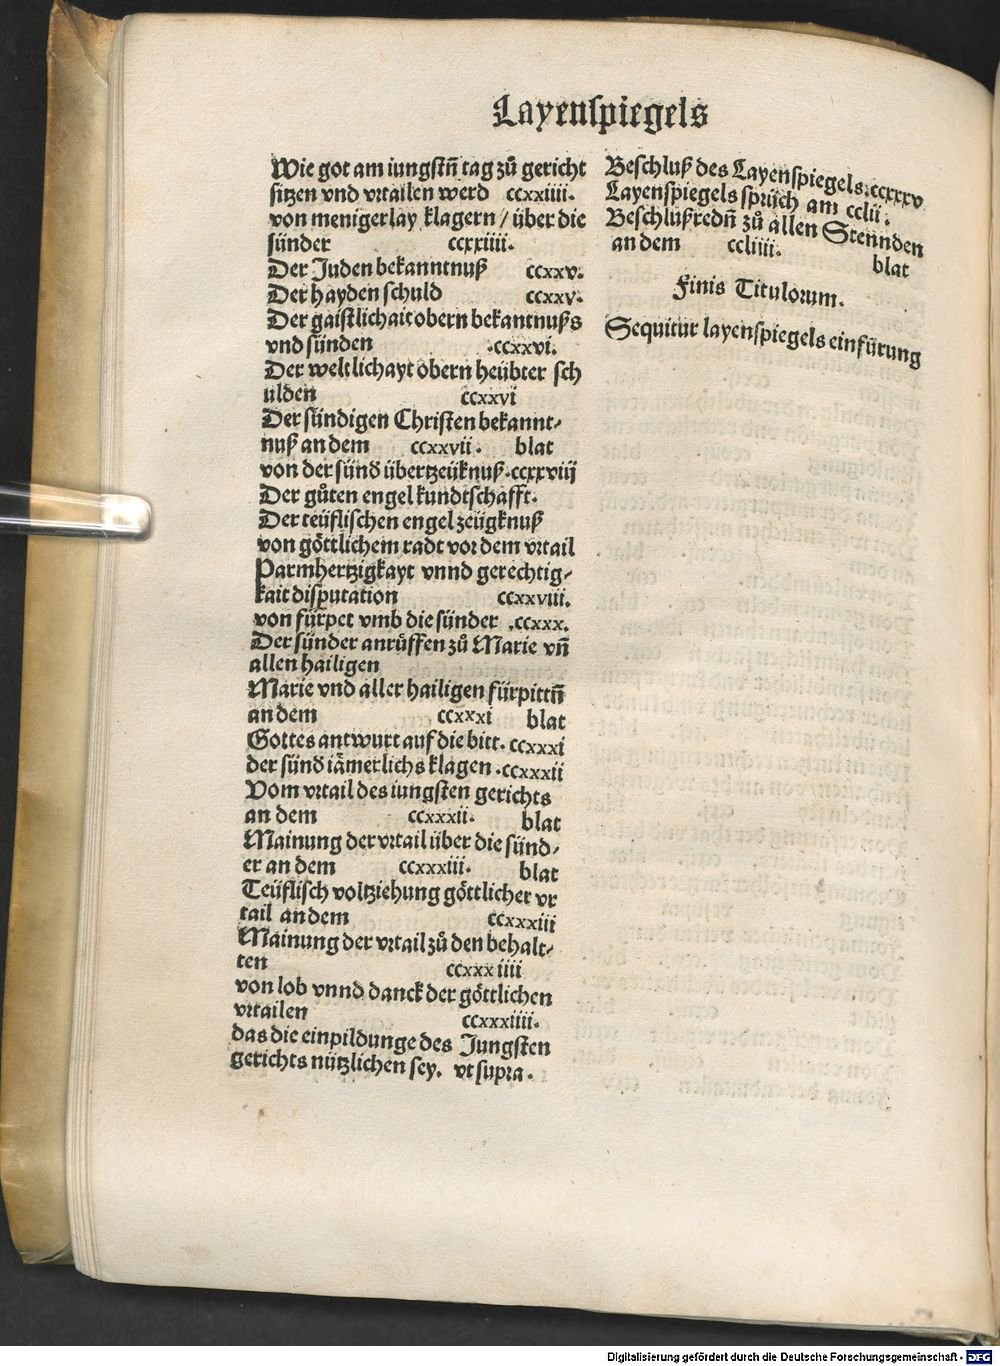 Layenſpiegels
Wie got am iungſtn̄ tag zů gericht
ſitzen vnd vrtailen werd ccxxiiii.
von menigerlay klagern / über die
ſünder ccxxiiii.
Der Juden bekanntnuß ccxxv.
Der hayden ſchuld ccxxv.
Der gaiſtlichait obern bekantnuß s
vnd ſünden .ccxxvi.
Der weltlichayt obern heübter ſch
ulden ccxxvi
Der ſündigen Chriſten bekannt⸗
nuß an dem ccxxvii. blat
von der ſünd übertzeüknuß.ccxxviij
Der gůten engel kundtſchafft.
Der teüfliſchen engel zeügknuß
von göttlichem radt vor dem vrtail
Parmhertzigkayt vnnd gerechtig⸗
kait diſputation ccxxviii.
von fürpet vmb die ſünder .ccxxx.
Der ſünder anrůffen zů Marie vn̄
allen hailigen
Marie vnd aller hailigen fürpittn̄
an dem ccxxxi blat
Gottes antwurt auf die bitt. ccxxxi
der ſünd iämerlichs klagen .ccxxxii
Vom vrtail des iungſten gerichts
an dem ccxxxii. blat
Mainung der vrtail über die ſünd⸗
er an dem ccxxxiii. blat
Teüfliſch voltziehung göttlicher vr
tail an dem ccxxxiii
Mainung der vrtail zů den behalt⸗
ten ccxxxiiii
von lob vnnd danck der göttlichen
vrtailen ccxxxiiii.
das die einpildunge des Jungſten
gerichts nützlichen ſey. vt ſupra.
Beſchluß des Layenſpiegels.ccxxxv
Layenſpiegels ſprüch am cclii.
Beſchlußredn̄ zů allen Stennden
an dem ccliiii. blat
Finis Titulorum.
Sequitur layenſpiegels einfürung
Digitalisierung gefördert durch die Deutsche Forschungsgemeinschaft - DFG